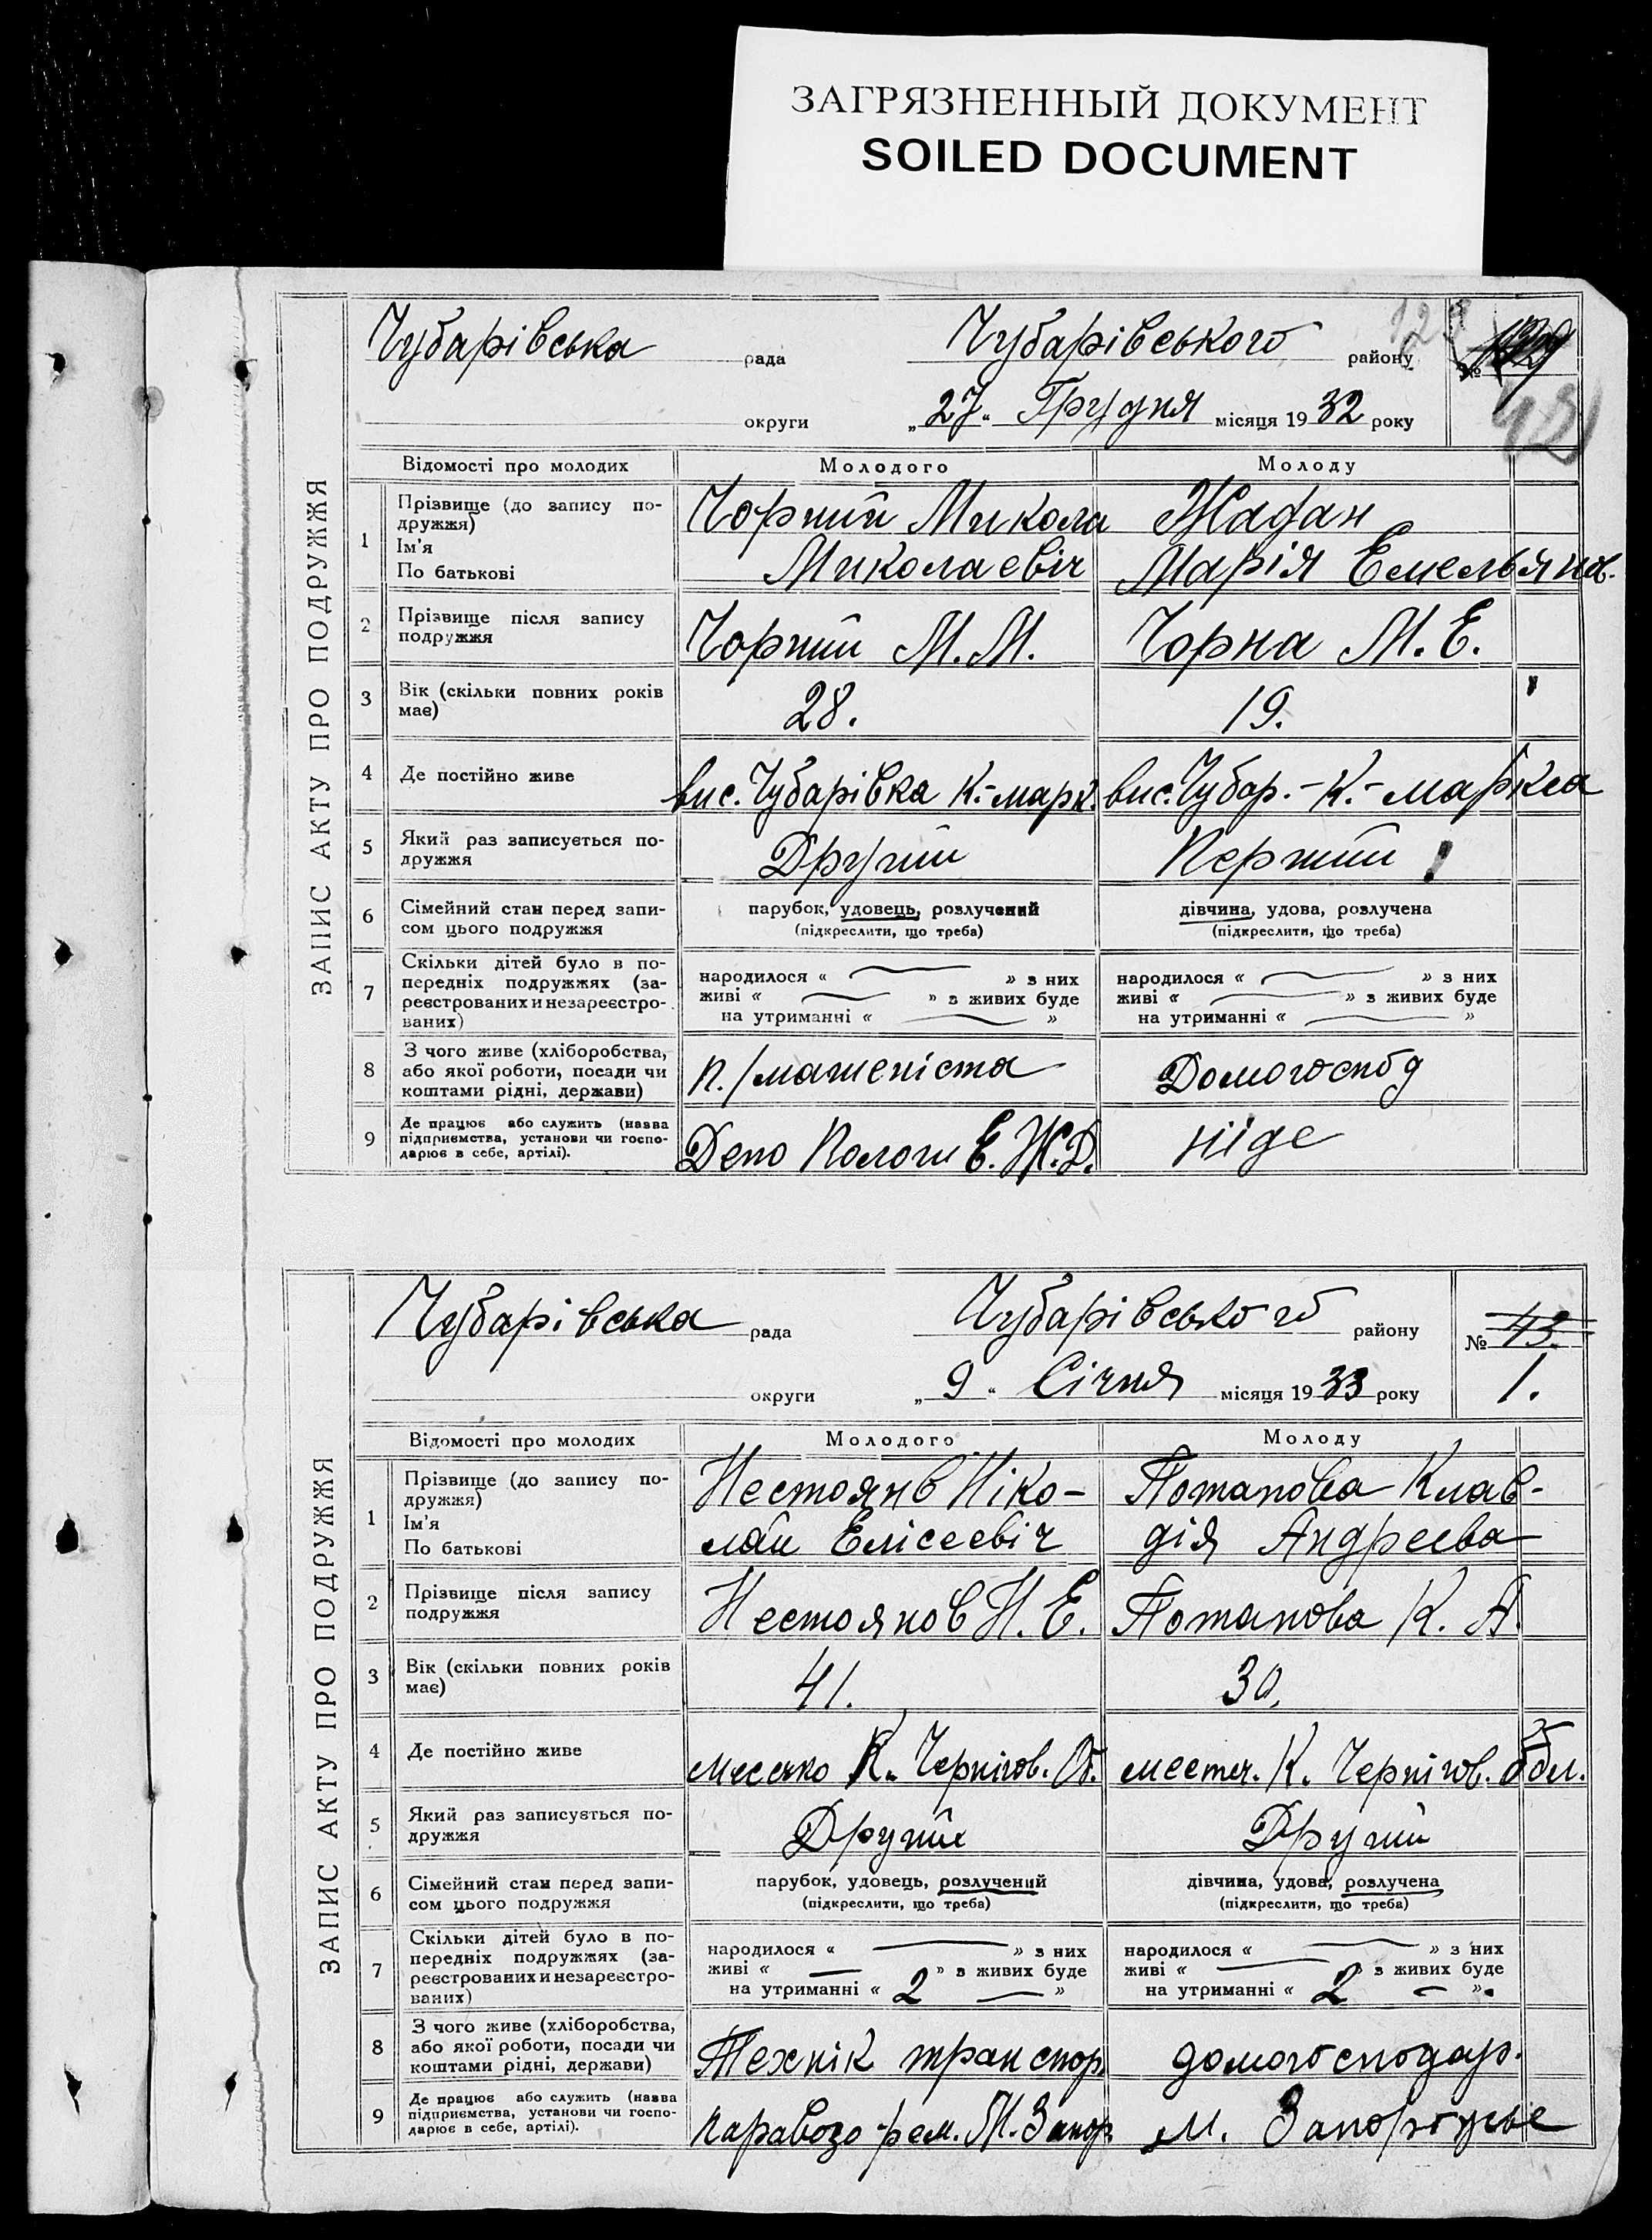 ЗАГРЯЗНЕННЫЙ ДОКУМЕНТ
SOILED DOCUMENT
ЗАПИС АКТУ ПРО ПОДРУЖЖЯ
Чубарівська рада Чубарівського району №
округи „27“ Грудня місяця 1932 року
Відомості про молодих Молодого Молоду
1 Прізвище (до запису по-
дружжя)
Ім'я
По батькові
Чорний Микола
Миколаєвіч
Жадан
Марія Емельянов.
2 Прізвище після запису
подружжя
Чорний М.М. Чорна М.Е.
3 Вік (скільки повних років
має)
28. 19.
4 Де постійно живе вис. Чубарівка К.-марк. вис. Чубар.-К.-маркса
5 Який раз записується по-
дружжя
Другий Перший
6 Сімейний стан перед запи-
сом цього подружжя
парубок, удовець, розлучений
(підкреслити, що треба)
дівчина, удова, розлучена
(підкреслити, що треба)
7 Скільки дітей було в по-
передніх подружжях (за-
реєстрованих и незареєстро-
ваних)
народилося « — » з них
живі « — » з живих буде
на утриманні « — »
народилося « — » з них
живі « — » з живих буде
на утриманні « — »
8 З чого живе (хліборобства,
або якої роботи, посади чи
коштами рідні, держави)
п./машеніста Домогоспод
9 Де працює або служить (назва
підприємства, установи чи госпо-
дарює в себе, артілі).
Депо Пологи Е.Ж.Д. ніде
ЗАПИС АКТУ ПРО ПОДРУЖЖЯ
Чубарівська рада Чубарівського району № 43.
округи „9“ Січня місяця 1933 року 1.
Відомості про молодих Молодого Молоду
1 Прізвище (до запису по-
дружжя)
Ім'я
По батькові
Нестоянв Ніко-
лай Елісеевіч
Потапова Клав-
дія Андреева
2 Прізвище після запису
подружжя
Нестоянов Н.Е. Потапова К.А.
3 Вік (скільки повних років
має)
41. 30.
4 Де постійно живе К. Чернігов. Об. местеч. К. Чернігов. обл.
5 Який раз записується по-
дружжя
Другий Другий
6 Сімейний стан перед запи-
сом цього подружжя
парубок, удовець, розлучений
(підкреслити, що треба)
дівчина, удова, розлучена
(підкреслити, що треба)
7 Скільки дітей було в по-
передніх подружжях (за-
реєстрованих и незареєстро-
ваних)
народилося « — » з них
живі « — » з живих буде
на утриманні « 2 — »
народилося « — » з них
живі « — » з живих буде
на утриманні « 2 — »
8 З чого живе (хліборобства,
або якої роботи, посади чи
коштами рідні, держави)
Технік транспор. домогосподар.
9 Де працює або служить (назва
підприємства, установи чи госпо-
дарює в себе, артілі).
паравозо-рем. М. Запор. м. Запоріжье